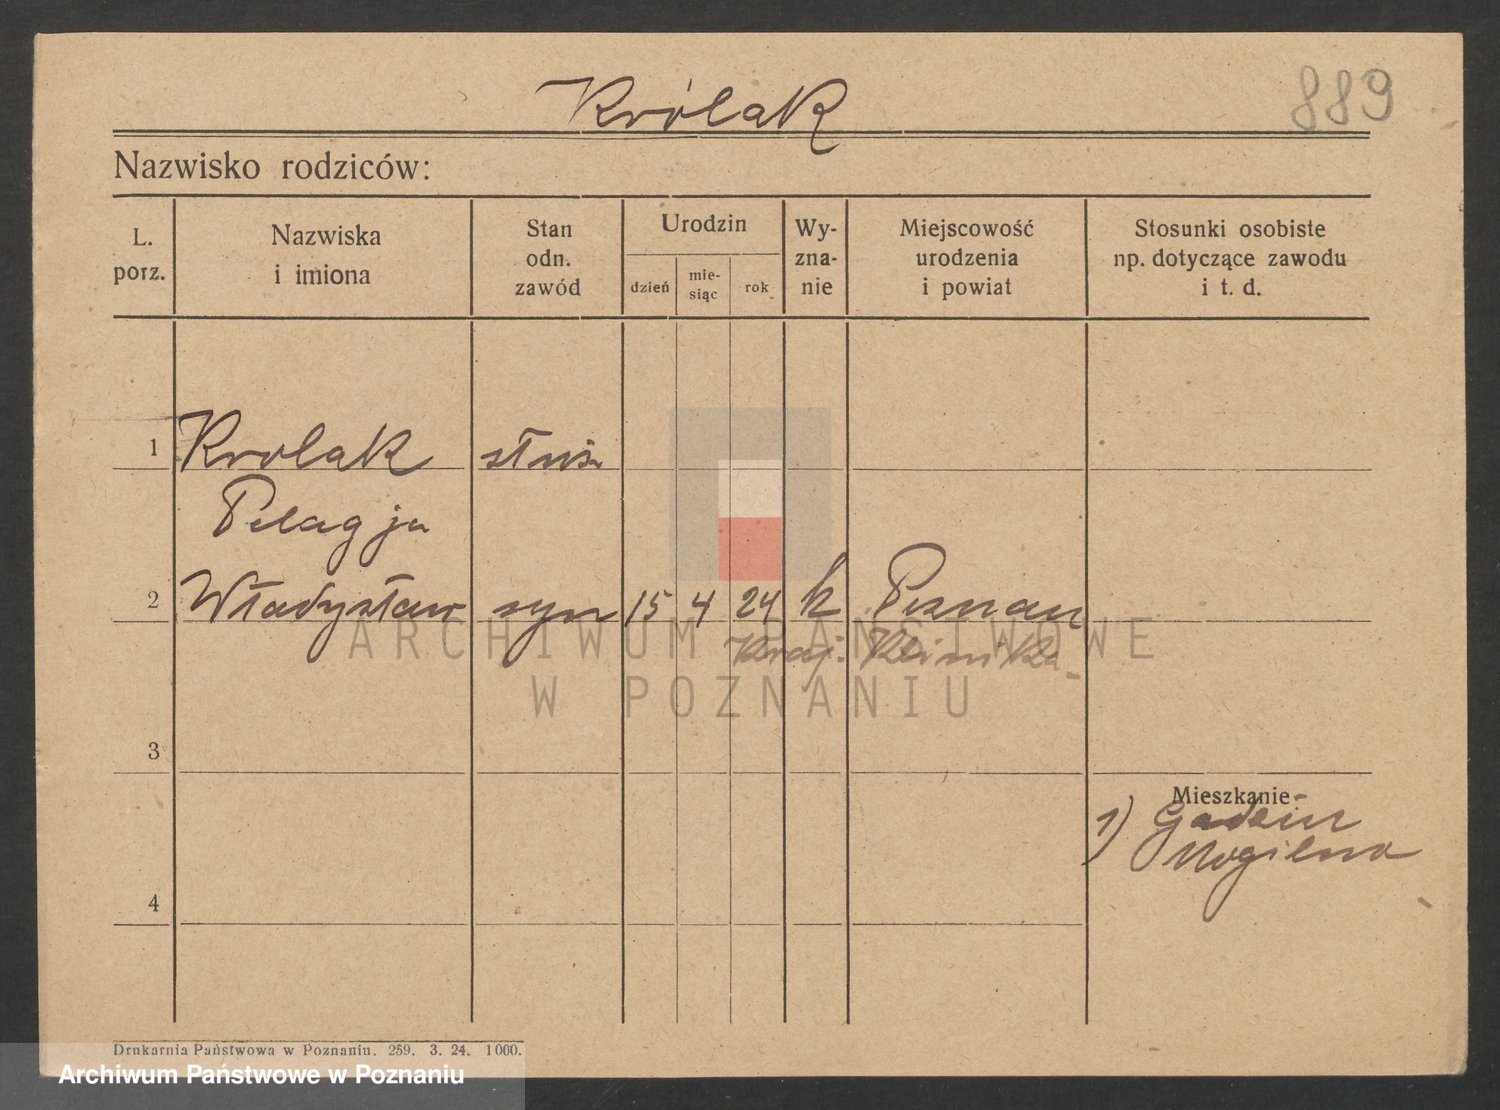 Królak
889
Nazwisko rodziców:
L. porz.
Nazwiska i imiona
Stan odn. zawód
Urodzin
dzień
mie-siąc
rok
Wy-zna-nie
Miejscowość urodzenia i powiat
Stosunki osobiste np. dotyczące zawodu i t. d.
1 Krolak służ.
Pelagja
2 Władysław syn 15 4 24 k Poznan
Kraj. Klinika
3
Mieszkanie
1)
Mogilno
4
Drukarnia Państwowa w Poznaniu. 259. 3. 24. 1000.
ARCHIWUM PAŃSTWOWE
W POZNANIU
Archiwum Państwowe w Poznaniu